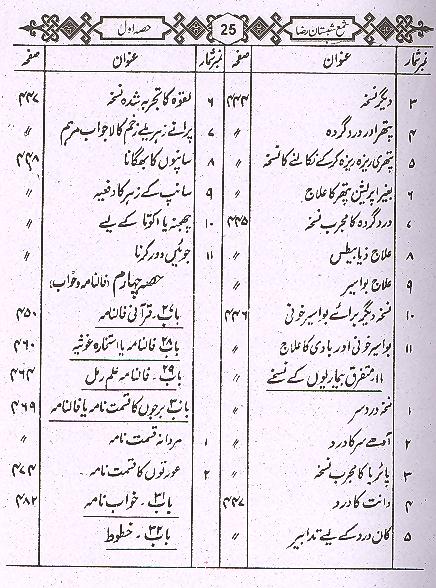 شمع شبستان رضا 25 حصہ اول
نمبر شمار عنوان صفحہ
۳ دیگر نسخہ ۴۴۴
۴ پتھر اور درد گردہ 〃
۵ پتھری ریزہ ریزہ کرکے نکالنے کا نسخہ 〃
۶ بغیر آپریشن پتھر کا علاج 〃
۷ درد گردہ کا مجرب نسخہ ۴۴۵
۸ علاج ذیابیطس 〃
۹ علاج بواسیر 〃
۱۰ نسخہ دیگر برائے بواسیر خونی ۴۴۶
۱۱ بواسیر خونی اور بادی کا علاج 〃
۱۱۔ متفرق بیماریوں کے نسخے
۱ نسخہ درد سر 〃
۲ آدھے سر کا درد 〃
۳ پائریا کا مجرب نسخہ 〃
۴ دانت کا درد ۴۴۷
۵ کان درد کے لیے تدابیر 〃
نمبر شمار عنوان صفحہ
۶ لقوہ کا تجربہ شدہ نسخہ ۴۴۷
۷ پرانے زہریلے زخم کا لاجواب مرہم 〃
۸ سانپوں کا بھگانا ۴۴۸
۹ سانپ کے زہر کا دفعیہ 〃
۱۰ چھبنہ یا اکوتا کے لیے 〃
۱۱ جوئیں دور کرنا 〃
حصہ چہارم (فالنامہ و خواب)
باب ۲۷۔ قرآنی فالنامہ ۴۵۰
باب ۲۸ فالنامہ یا استخارہ غوثیہ ۴۶۰
باب ۲۹۔ فالنامہ علم رمل ۴۶۴
باب ۳۰ برجوں کا قسمت نامہ یا فالنامہ ۴۶۹
۱ مردانہ قسمت نامہ 〃
۲ عورتوں کا قسمت نامہ ۴۷۴
باب ۳۱۔ خواب نامہ ۴۸۲
باب ۳۲۔ خطوط